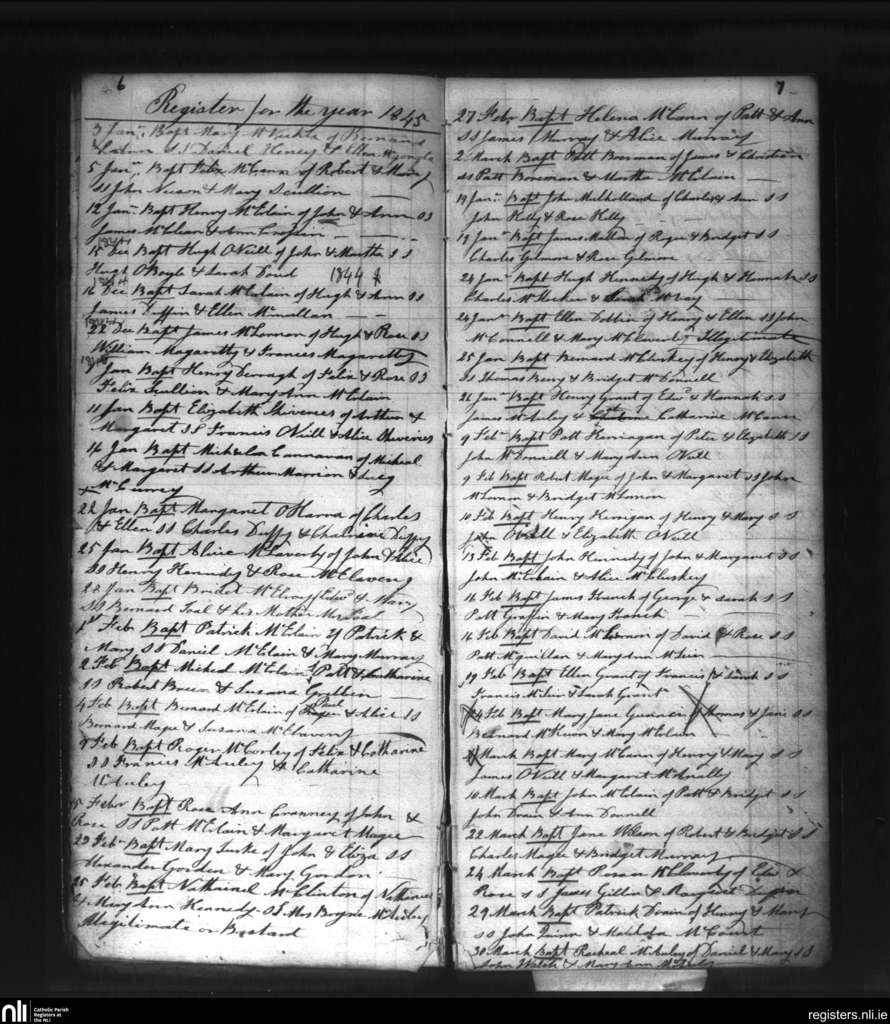 6
Register for the year 1845
3 Jan. Bapt Mary
SS Daniel Heney & Ellen
5 Jan. Bapt Felix McCann of Robert & Mary
SS John & Mary Scullion
12 Jan. Bapt Henry McClain of John & Ann SS
James McClain & Ann
1844
15 Dec Bapt Hugh ONeill of John & Martha SS
Hugh OBoyle & Sarah Doud 1844
16 Dec Bapt Sarah McClain of Hugh & Ann SS
James & Ellen McMullan
22 Dec Bapt James McLornon of Hugh & Rose SS
William Magarotty & Frances Magarotty
Jan Bapt Henry Darragh of Felix & Rose SS
Felix Scullion & Mary Ann McClain
11 Jan Bapt Elizabeth of Arthur &
Margaret SS Francis ONeill & Alice
14 Jan Bapt Cannavan of Micheal
& Margaret SS Arthur & Lucy
McCurrey
22 Jan Bapt Margaret OHarra of Charles
& Ellen SS Charles Duffy & Duffy
25 Jan Bapt Alice McClaverty of John & Alice
SS Henry Kennedy & Rose
28 Jan Bapt McElroy of Edwd & Mary
SS Bernard & his Mother
1st Feb Bapt Patrick McClain of Patrick &
Mary SS Daniel McClain & Mary Murray
2 Feb Bapt Micheal McClain of Patt & Catharine
SS Robert Breen & Susana
4 Feb Bapt Bernard McClain of Paul & Alice SS
Bernard Magee & Susana
9 Feb Bapt Roger McCorley of Felix & Catharine
SS Francis McAuley & Catharine
McAuley
15 Febr Bapt Rose Ann Cranney of John &
Rose SS Patt McClain & Margaret Magee
23 Feb Bapt Mary of John & Eliza SS
Alexander Gordon & Mary Gordon
25 Feb Bapt Nathaniel McClinton of Nathaniel
& Mary Ann Kennedy SS Mrs McAuley
Illegitimate or Bastard
7
27 Febr Bapt Helena McCann of Patt & Ann
SS James Murray & Alice Murray
2 March Bapt Patt Boreman of James & Christian
SS Patt Boreman & Martha McClain
19 Jan. Bapt John Mulholland of Charles & Ann SS
John Kelly & Rose Kelly
19 Jan. Bapt James Mallon of Roger & Bridget SS
Charles Gilmore & Rose Gilmore
24 Jan. Bapt Hugh Kennedy of Hugh & Hannah SS
Charles & Sarah McCoy
24 Jan. Bapt Ellen Dobbin of Henry & Ellen SS John
McConnell & Mary McClaverty Illegitimate
25 Jan Bapt Bernard McCluskey of Henry & Elizabeth
SS Thomas Berry & Bridget McDonnell
26 Jan. Bapt Henry Grant of Edwd & Hannah SS
James McAuley & Catharine McCann
9 Feb. Bapt Patt Kerrigan of Peter & Elizabeth SS
John McDonnell & Mary Ann ONeill
9 Feb Bapt Robert Magee of John & Margaret SS John
McLornon & Bridget McLornon
10 Feb Bapt Henry Kerrigan of Henry & Mary SS
John ONeill & Elizabeth ONeill
13 Feb Bapt John Kennedy of John & Margaret SS
John McErlain & Alice McCluskey
16 Feb Bapt James French of George & Sarah SS
Patt Griffin & Mary French
16 Feb Bapt David McLornon of David & Rose SS
Patt Mcguillan & Mary Ann
19 Feb Bapt Ellen Grant of Francis & Sarah SS
Francis & Sarah Grant
24 Feb Bapt Mary Jane of Thomas & Jane SS
Bernard McKeown & Mary McClain
March Bapt Mary McCann of Henry & Mary SS
James ONeill & Margaret McAnally
10 March Bapt John McClain of Patt & Bridget SS
John Drain & Ann Donnell
22 March Bapt Jane Wilson of Robert & Bridget SS
Charles Magee & Bridget Murray
24 March Bapt Rosan McClaverty of Edwd &
Rose SS James Gillin & Margaret
29 March Bapt Patrick Drain of Henry & Mary
SS John Quinn & Matilda McCourt
30 March Bapt Racheal McAuley of Daniel & Mary SS
John Welch & Mary Ann McAuley
nli
Catholic Parish
Registers at
the NLI
registers.nli.ie